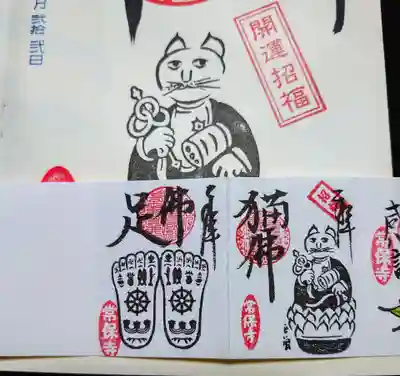 月弐拾弐日
開運招福
奉拝
佛
足
常保寺
奉拝
猫佛
常保寺
常保寺